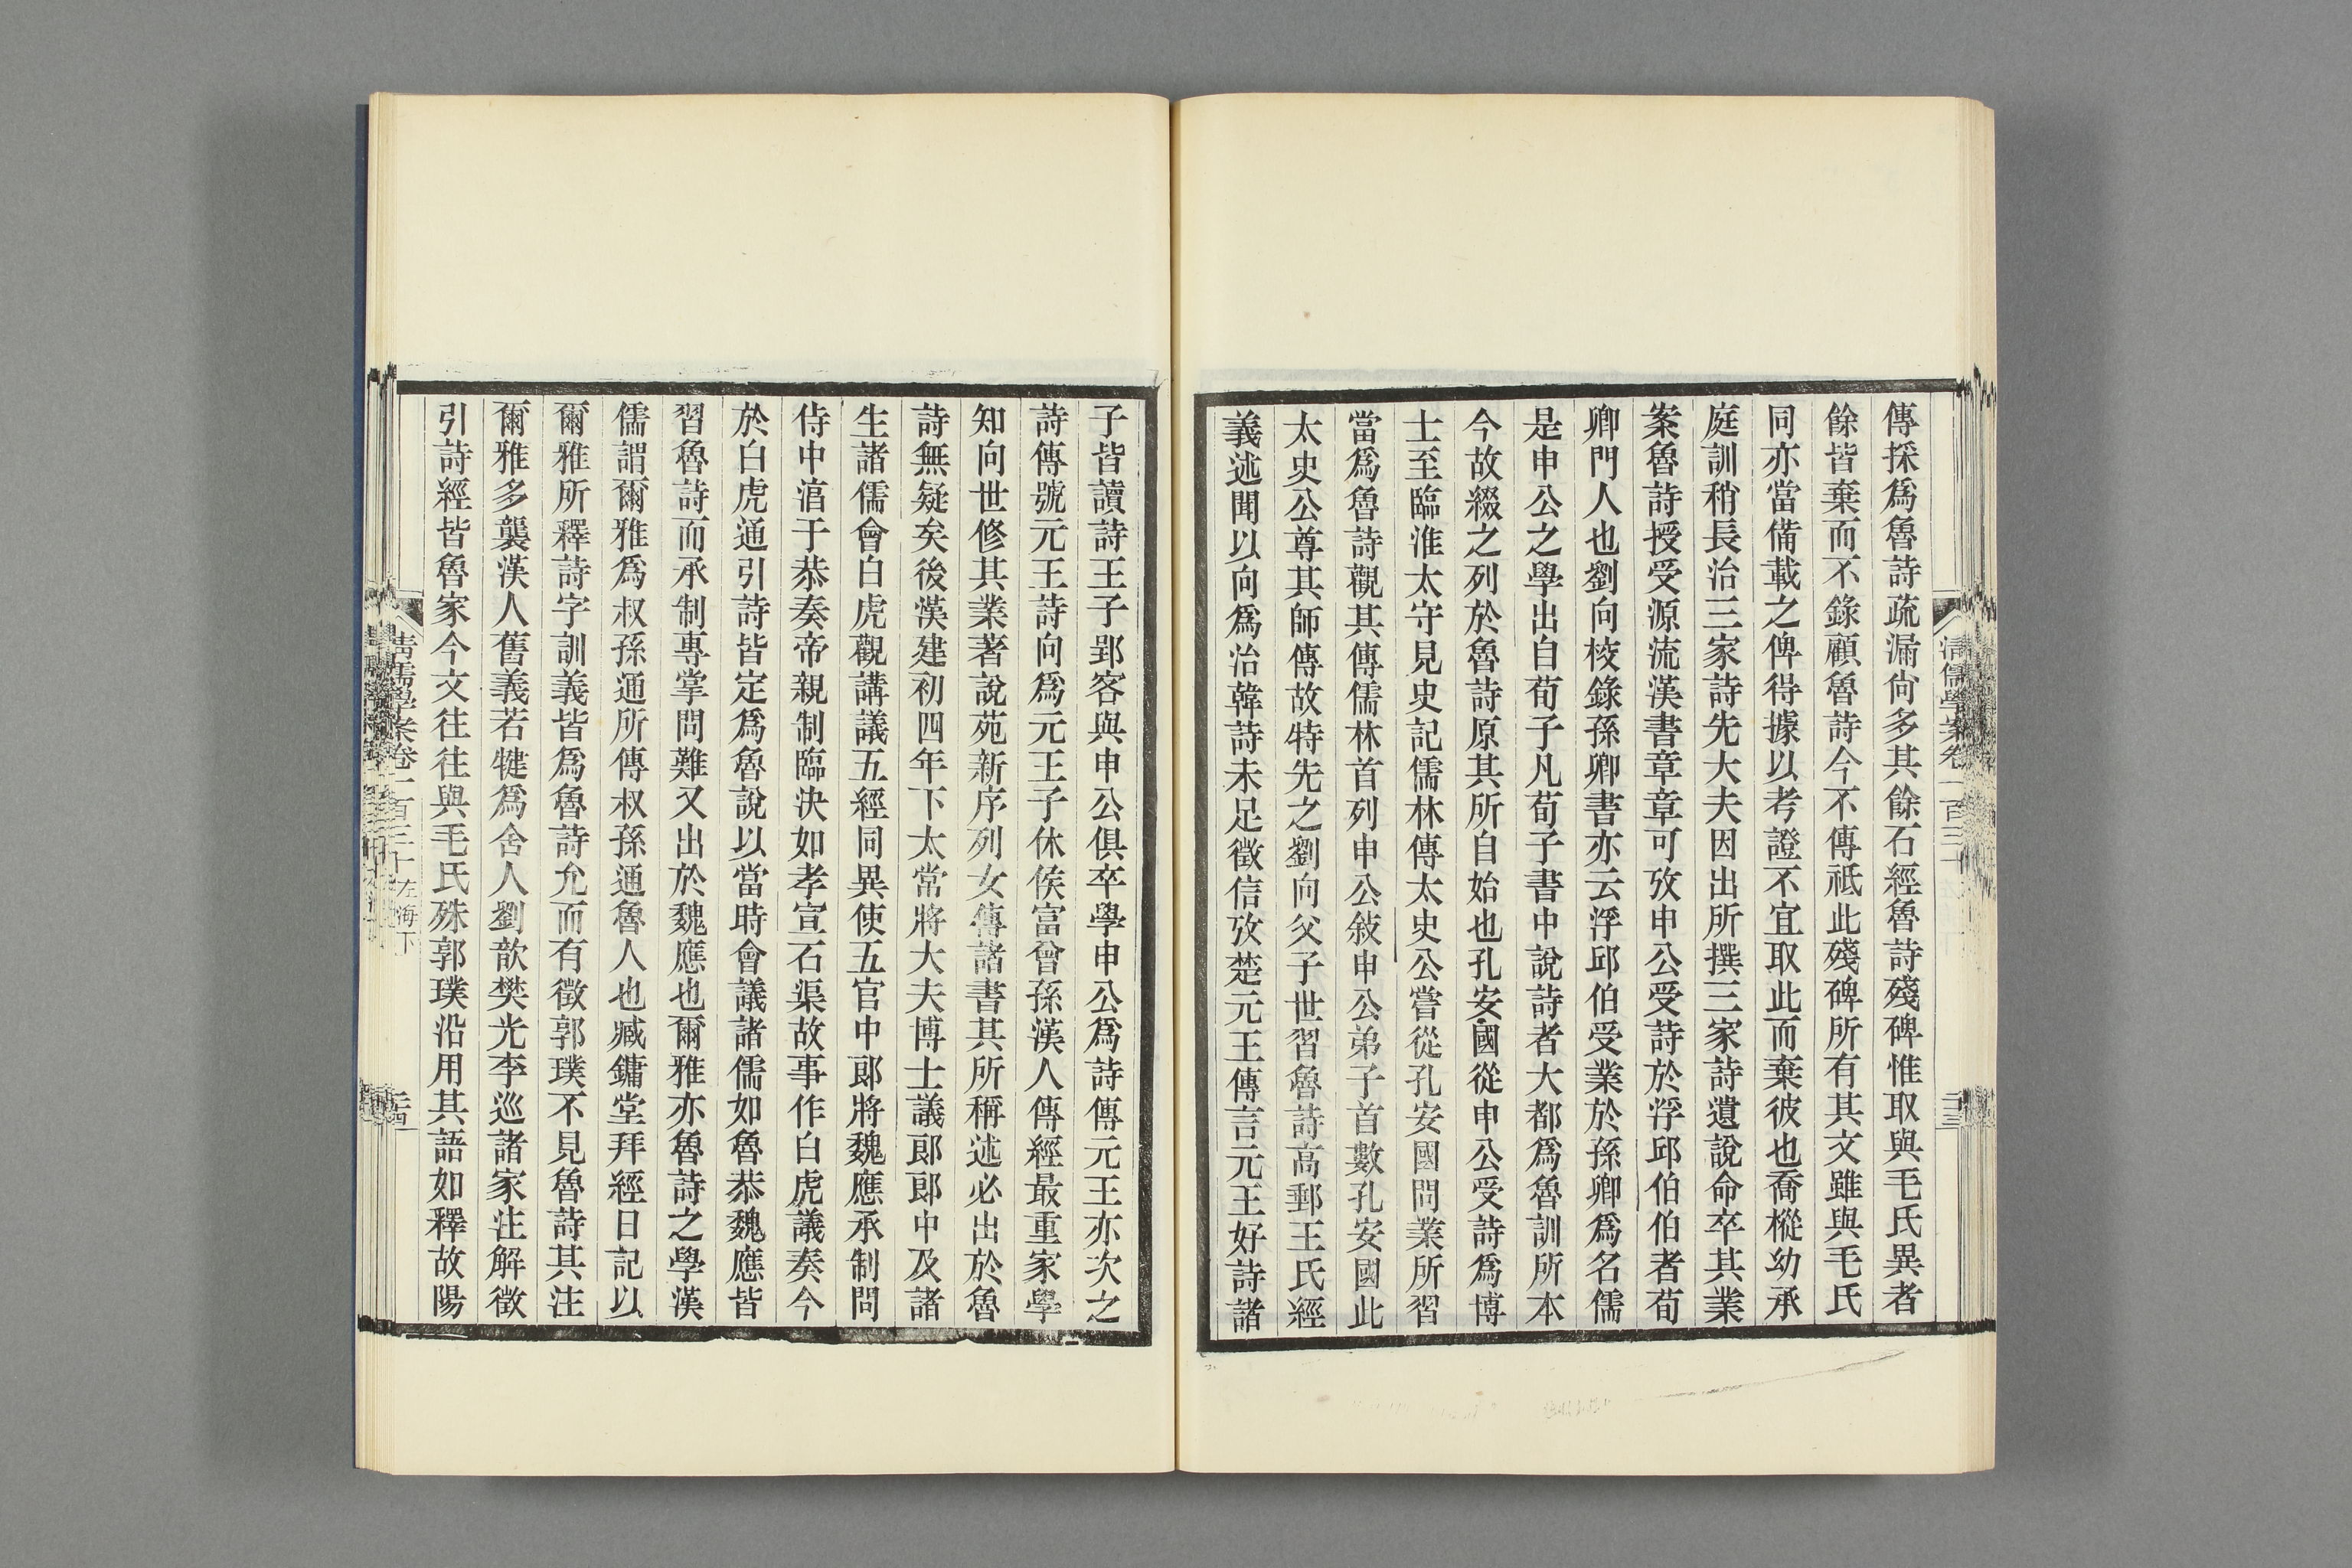 清儒學案卷一百三十
二十三
傳採爲魯詩疏漏尙多其餘石經魯詩殘碑惟取與毛氏異者
餘皆棄而不錄顧魯詩今不傳祇此殘碑所有其文雖與毛氏
同亦當備載之俾得據以考證不宜取此而棄彼也喬樅幼承
庭訓稍長治三家詩先大夫因出所撰三家詩遺說命卒其業
案魯詩授受源流漢書章章可攷申公受詩於浮邱伯伯者荀
卿門人也劉向校錄孫卿書亦云浮邱伯受業於孫卿爲名儒
是申公之學出自荀子凡荀子書中說詩者大都爲魯訓所本
今故綴之列於魯詩原其所自始也孔安國從申公受詩爲博
士至臨淮太守見史記儒林傳太史公嘗從孔安國問業所習
當爲魯詩觀其傳儒林首列申公敍申公弟子首數孔安國此
太史公尊其師傳故特先之劉向父子世習魯詩高郵王氏經
義述聞以向爲治韓詩未足徵信攷楚元王傳言元王好詩諸
子皆讀詩王子郢客與申公俱卒學申公爲詩傳元王亦次之
詩傳號元王詩向爲元王子休侯富曾孫漢人傳經最重家學
知向世修其業著說苑新序列女傳諸書其所稱述必出於魯
詩無疑矣後漢建初四年下太常將大夫博士議郞郞中及諸
生諸儒會白虎觀講議五經同異使五官中郞將魏應承制問
侍中淯于恭奏帝親制臨決如孝宣石渠故事作白虎議奏今
於白虎通引詩皆定爲魯說以當時會議諸儒如魯恭魏應皆
習魯詩而承制專掌問難又出於魏應也爾雅亦魯詩之學漢
儒謂爾雅爲叔孫通所傳叔孫通魯人也臧鏞堂拜經日記以
爾雅所釋詩字訓義皆爲魯詩允而有徵郭璞不見魯詩其注
爾雅多襲漢人舊義若犍爲舍人劉歆樊光李巡諸家注解徵
引詩經皆魯家今文往往與毛氏殊郭璞沿用其語如釋故陽
清儒學案卷一百三十 左海下
二十四